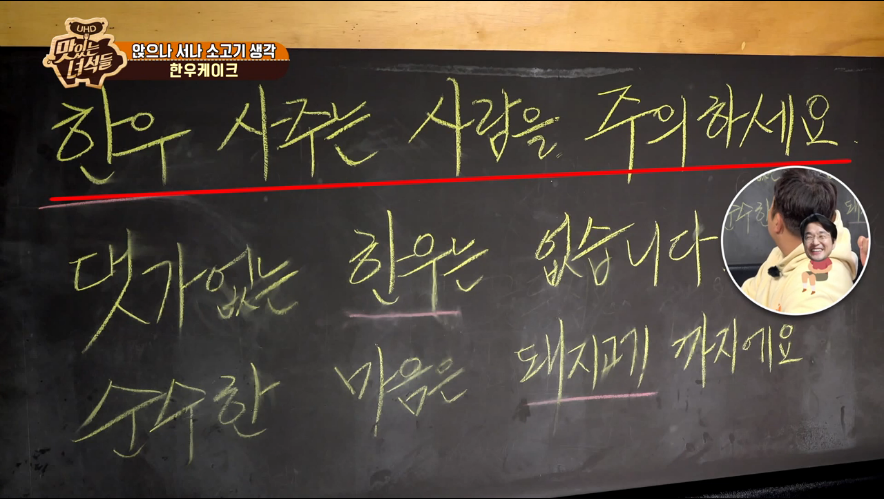 UHD
맛있는
녀석들
앉으나 서나 소고기 생각
한우케이크
한우 사주는 사람을 주의하세요.
댓가없는 한우는 없습니다.
순수한 마음은 돼지고기 까지에요
순수한 돼